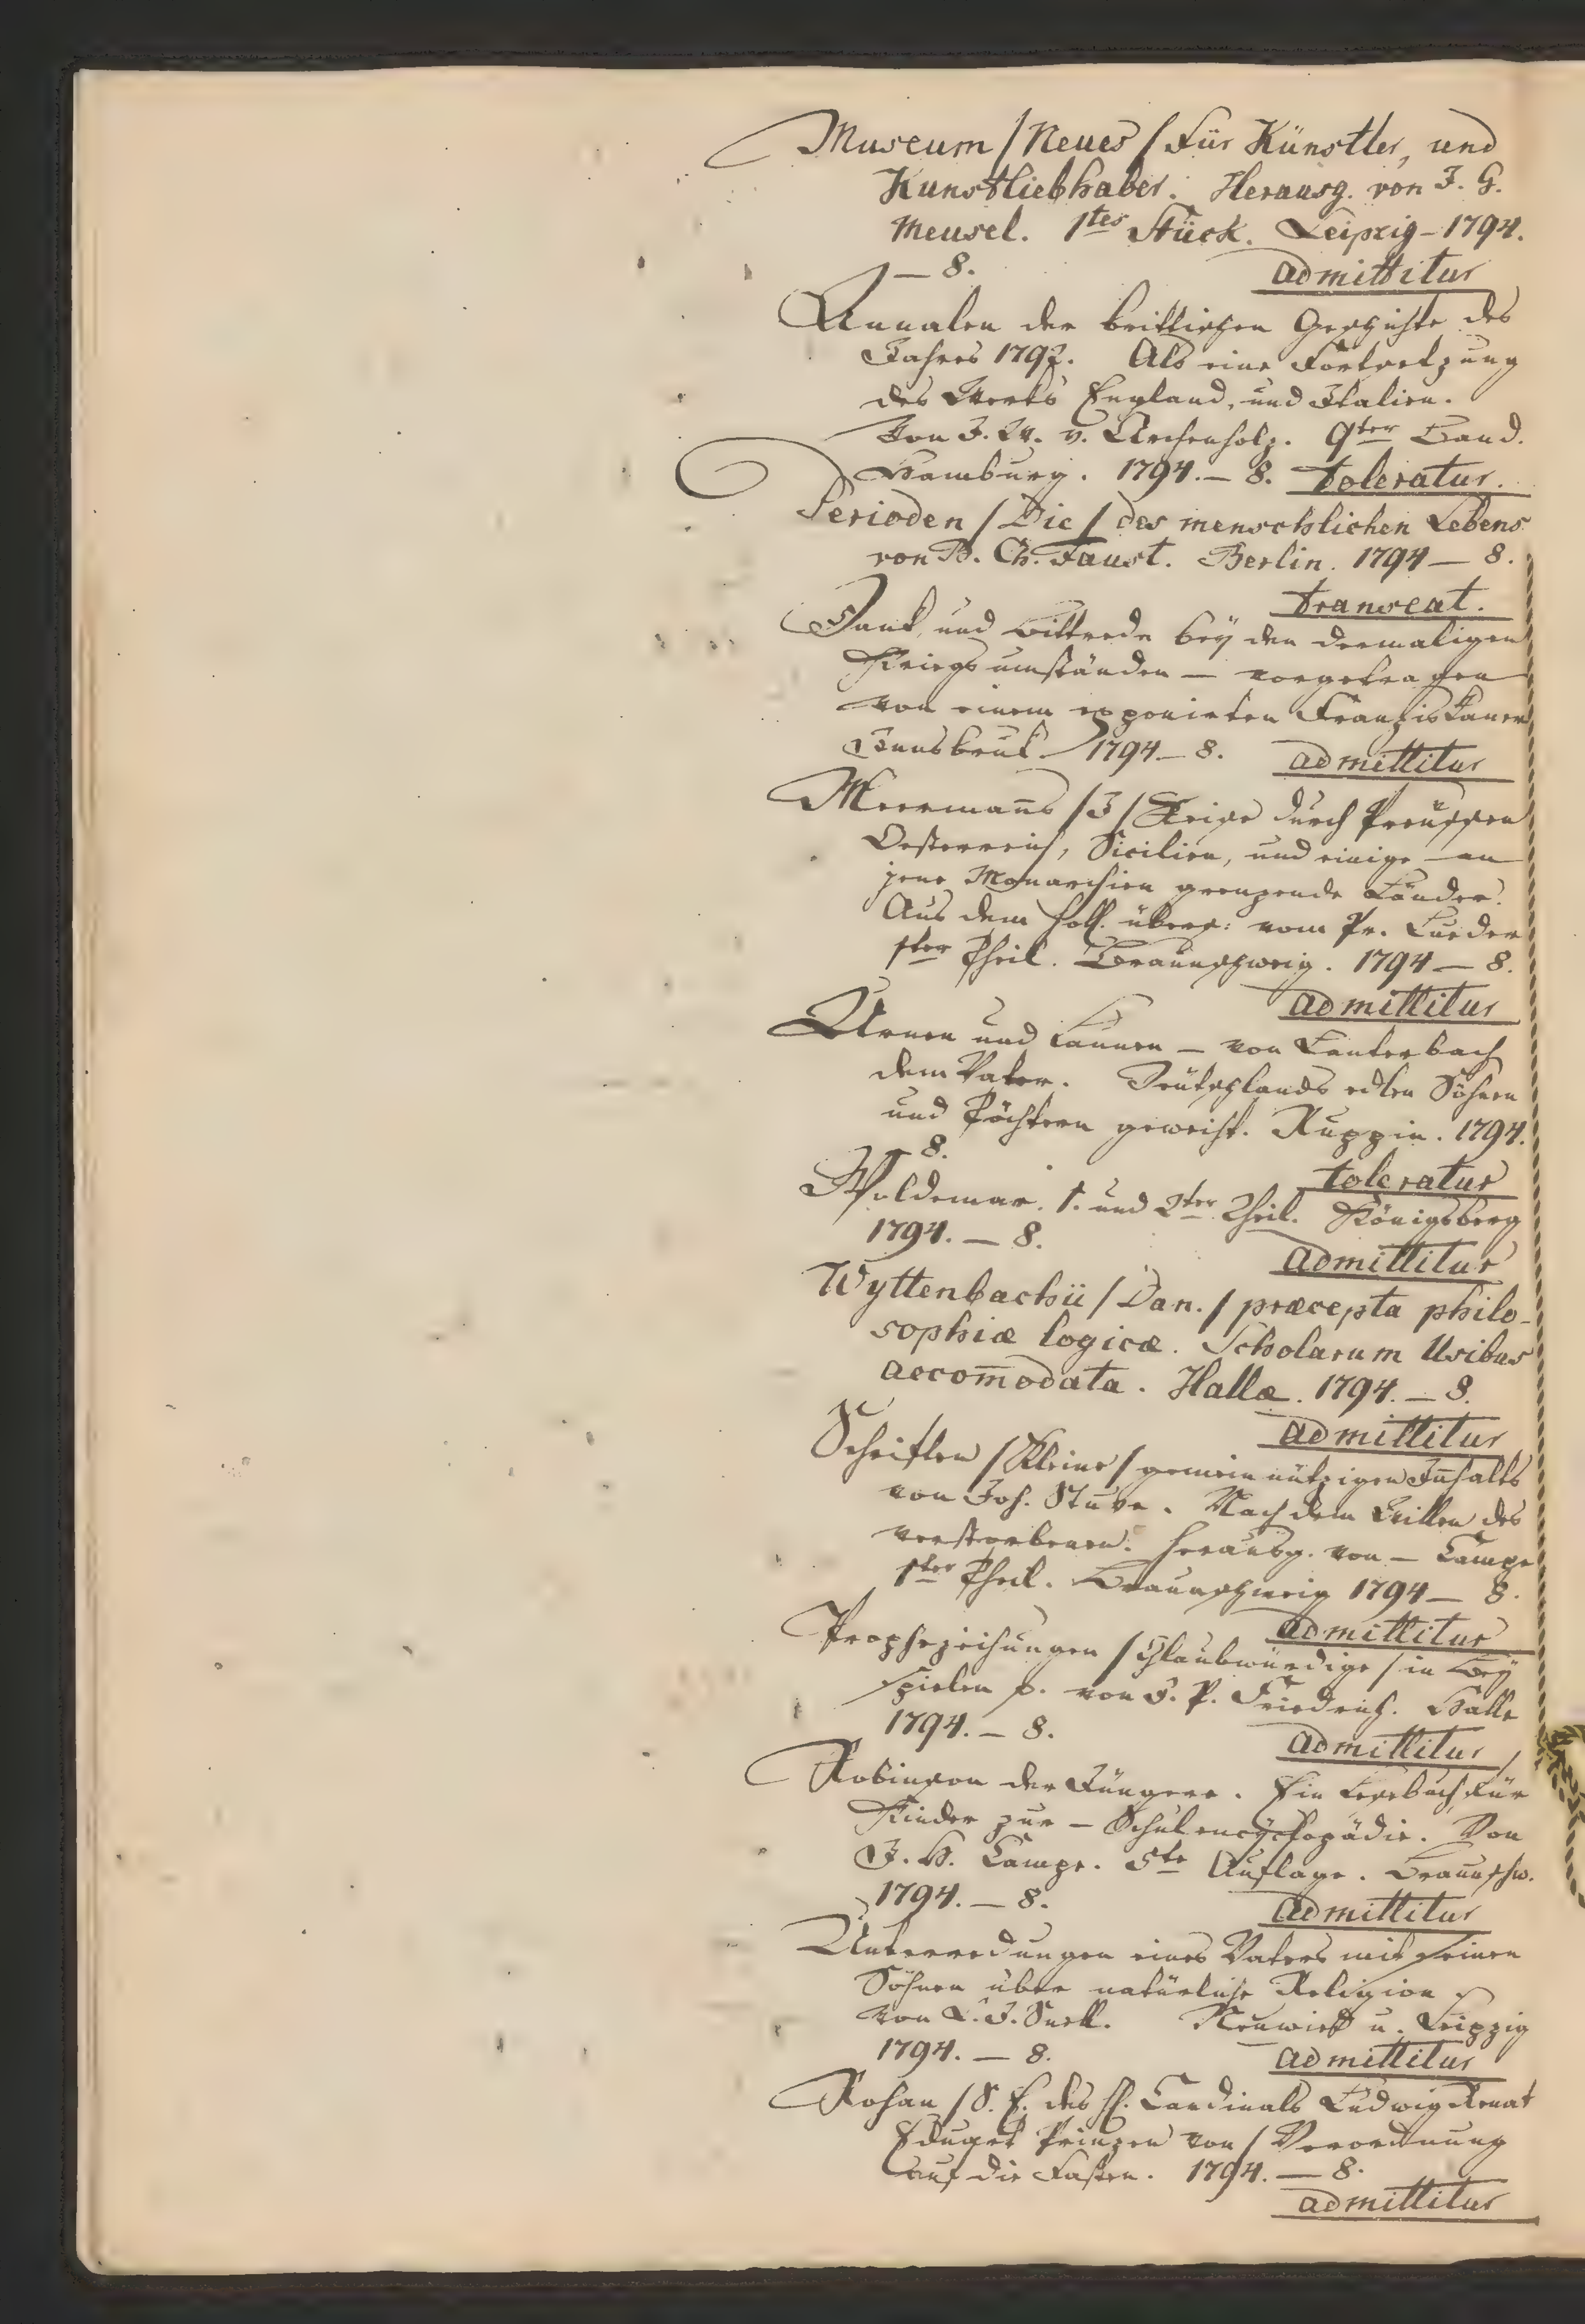 Museum /Neues/ Für Künstler, und
Kunstliebhaber. Herausg. von J. G.
Meusel. 1tes Stück. Leipzig – 1794.
— 8. admittitur
Annalen der brittischen Geschichte des
Jahres 1792. Als eine Fortsetzung
des Werks England, und Italien.
Von J. W. v. Archenholz. 9ter Band.
Hamburg. 1794. — 8. toleratur.
Perioden /Die/ des menschlichen Lebens
von B. Ch. Faust. Berlin. 1794 — 8.
transeat.
Dank, und Bittrede beÿ den dermaligen
Kriegsumständen — vorgetragen
von einem exponirten Franziskaner
Innsbruk 1794 — 8. admittitur
Meermanns /J/ Reise durch Preüssen
Oesterreich, Sicilien, und einige — an
jene Monarchien grenzende Länder.
Aus dem holl. übers: vom Pr. Lueder
1ter Theil. Braunschweig. 1794 — 8.
admittitur
Urnen und Launen — von Lauterbach
dem Vater. Teütschlands edlen Söhnen
und Töchtern geweiht. Ruppin. 1794.
— 8.
toleratur
Woldemar. 1. und 2ter Theil. Königsberg
1794. — 8.
admittitur
Wyttenbachii /Dan./ præcepta philo-
sophiæ logicæ. Scholarum Usibus
accom̄odata. Hallæ. 1794. — 8.
admittitur
Schriften /Kleine/ gemeinnützigen Inhalts
von Joh. Stuve. Nach dem Willen des
verstorbenen. herausg. von — Campe
1ter Theil. Braunschweig 1794 — 8.
admittitur
Prophezeihungen /Glaubwürdige/ in Beÿ
spielen p. von F. P. Friedrich. Halle
1794. — 8.
admittitur
Robinson der Jüngere. Ein Lesebuch für
Kinder zur — Schulencÿclopädie. Von
J. H. Campe. 5te Auflage. Braunschw.
1794. — 8.
admittitur
Unterredungen eines Vaters mit seinen
Söhnen über natürliche Religion
von L. J. Snell. Neuwied u. Leipzig
1794. — 8.
admittitur
Rohan /S. E. des H. Cardinals Ludwig Renat
Eduard Prinzen von/ Verordnung
auf die Fasten. 1794. — 8.
admittitur